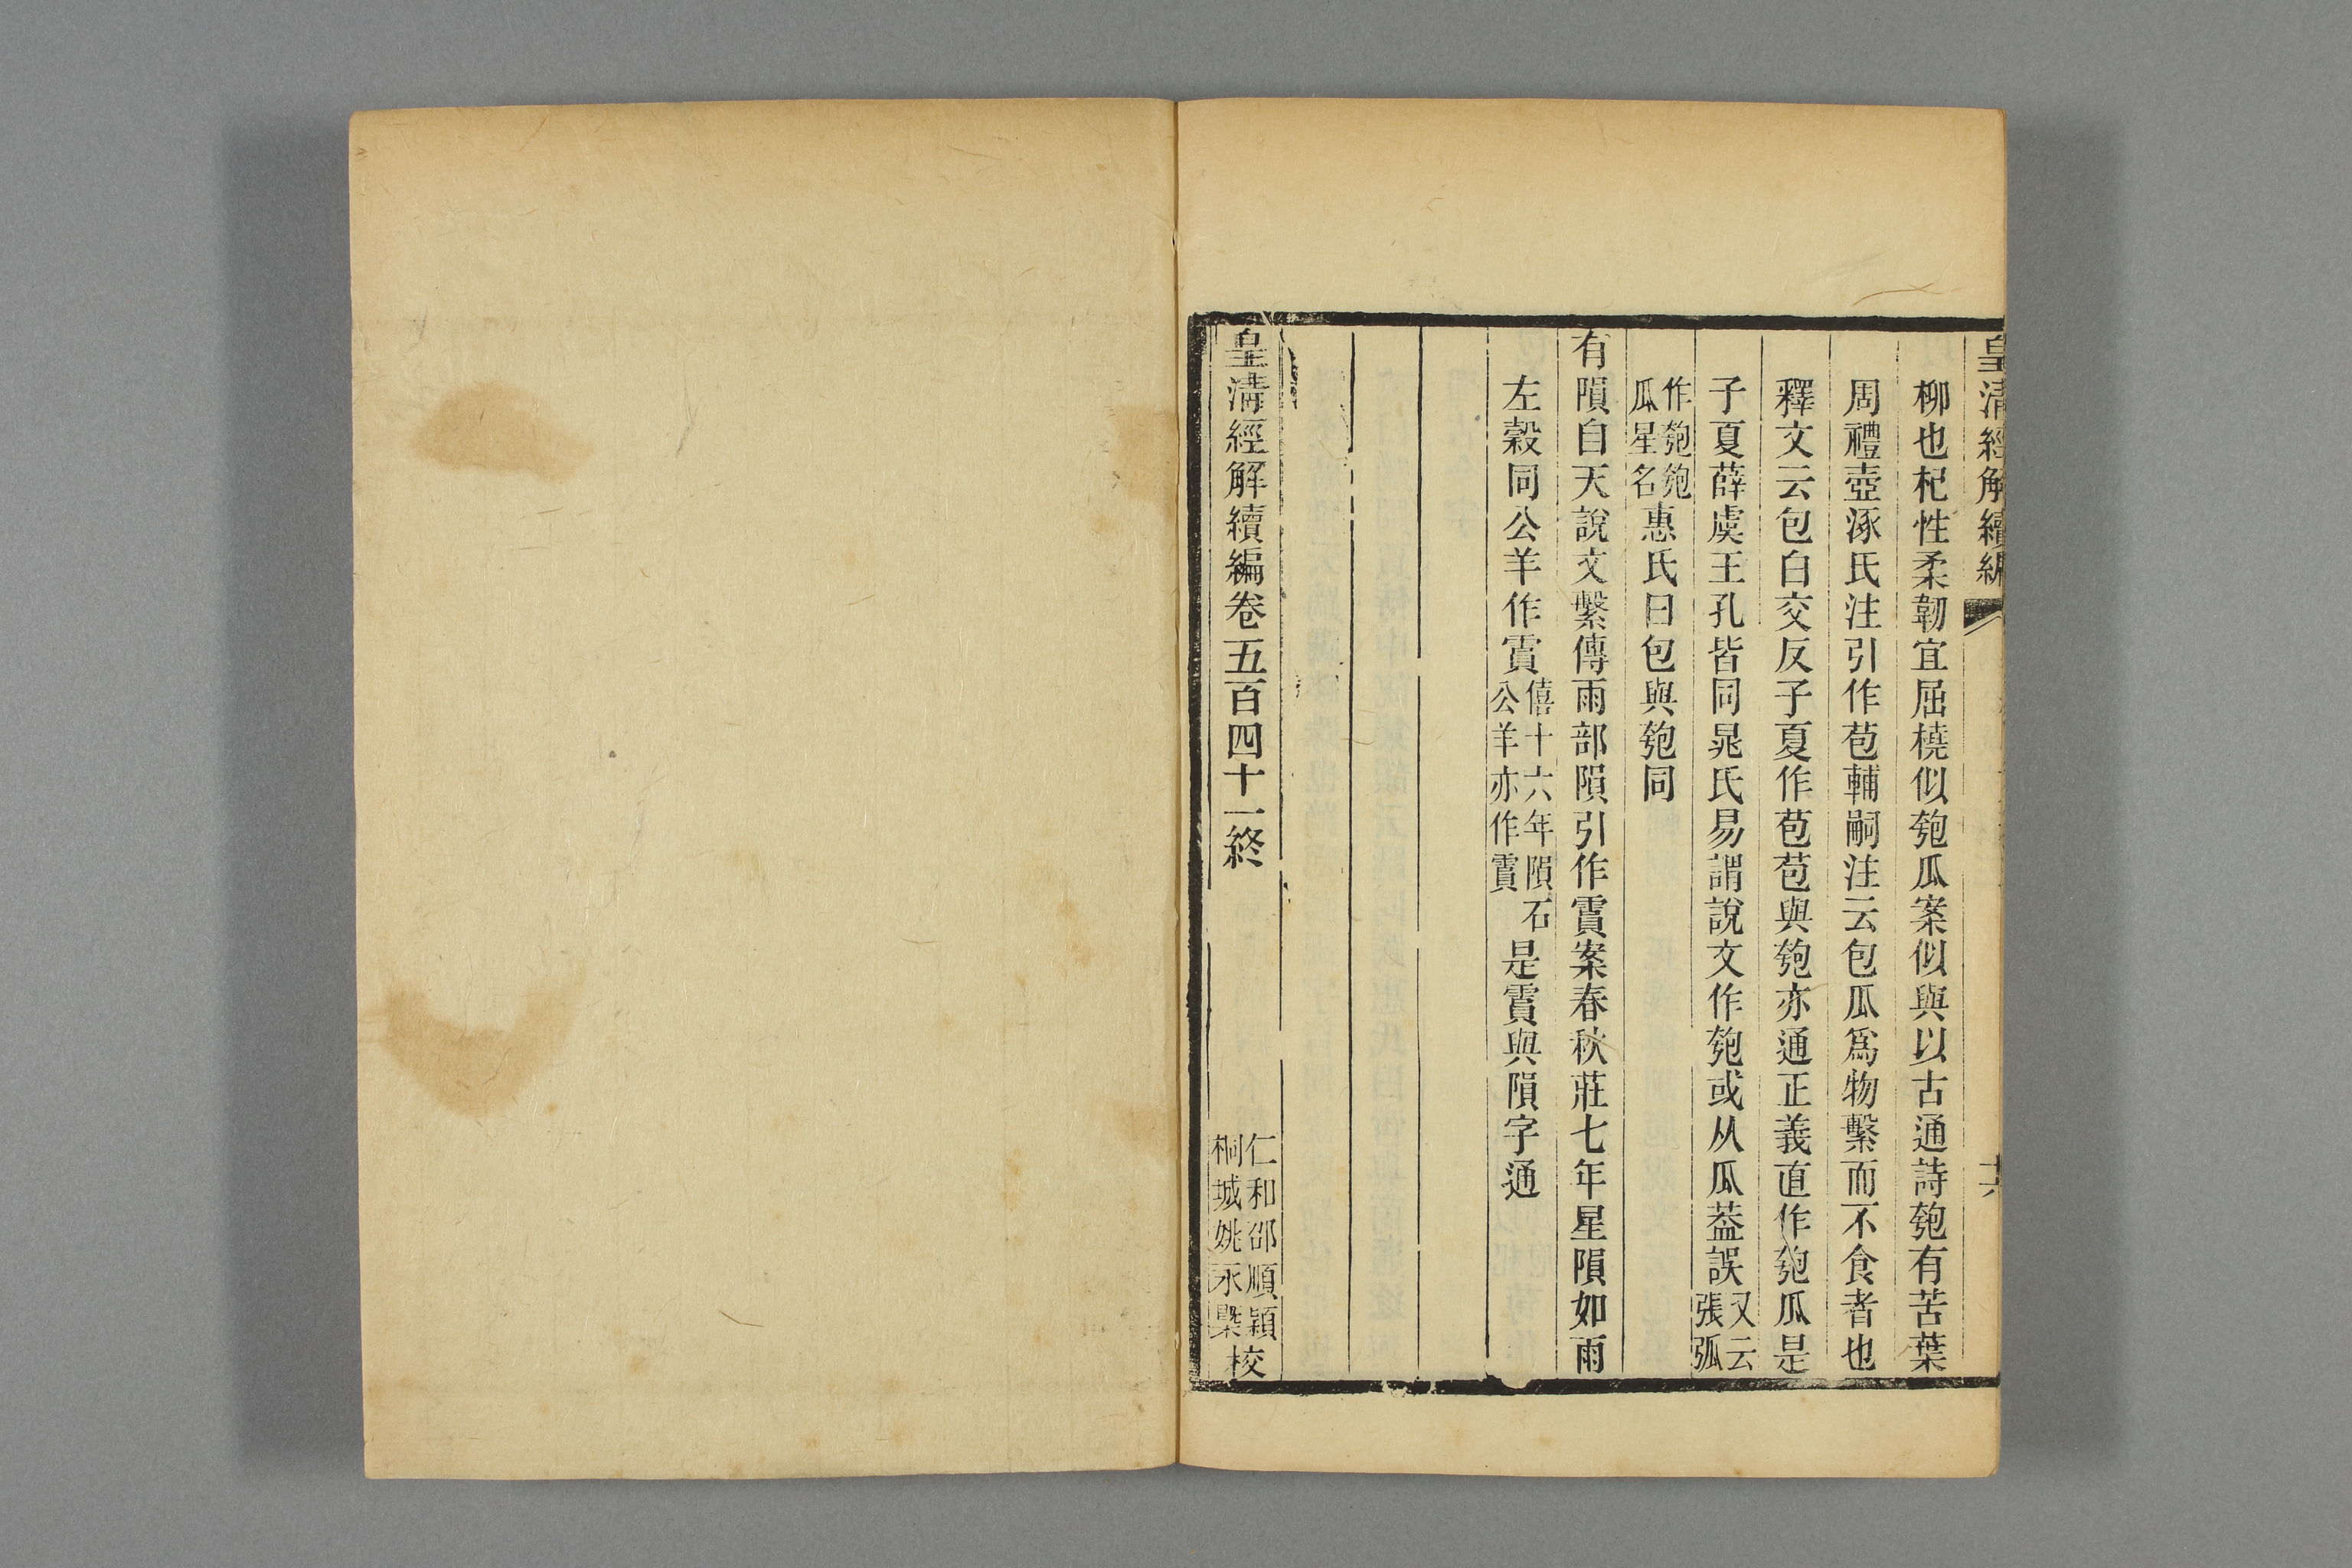 皇清經解續編
十六
柳也杞性柔韌宜屈橈似匏瓜案似與以古通詩匏有苦葉
周禮壺涿氏注引作苞輔嗣注云包瓜爲物繫而不食者也
釋文云包白交反子夏作苞苞與匏亦通正義直作匏瓜是
子夏薛虞王孔皆同晁氏易謂說文作匏或从瓜葢誤又云張弧
作匏匏瓜星名惠氏曰包與匏同
有隕自天說文繫傳雨部隕引作霣案春秋莊七年星隕如雨
左穀同公羊作霣僖十六年隕石公羊亦作霣是霣與隕字通
皇淸經解續編卷五百四十一終
仁和邵順穎
桐城姚永㮣
校